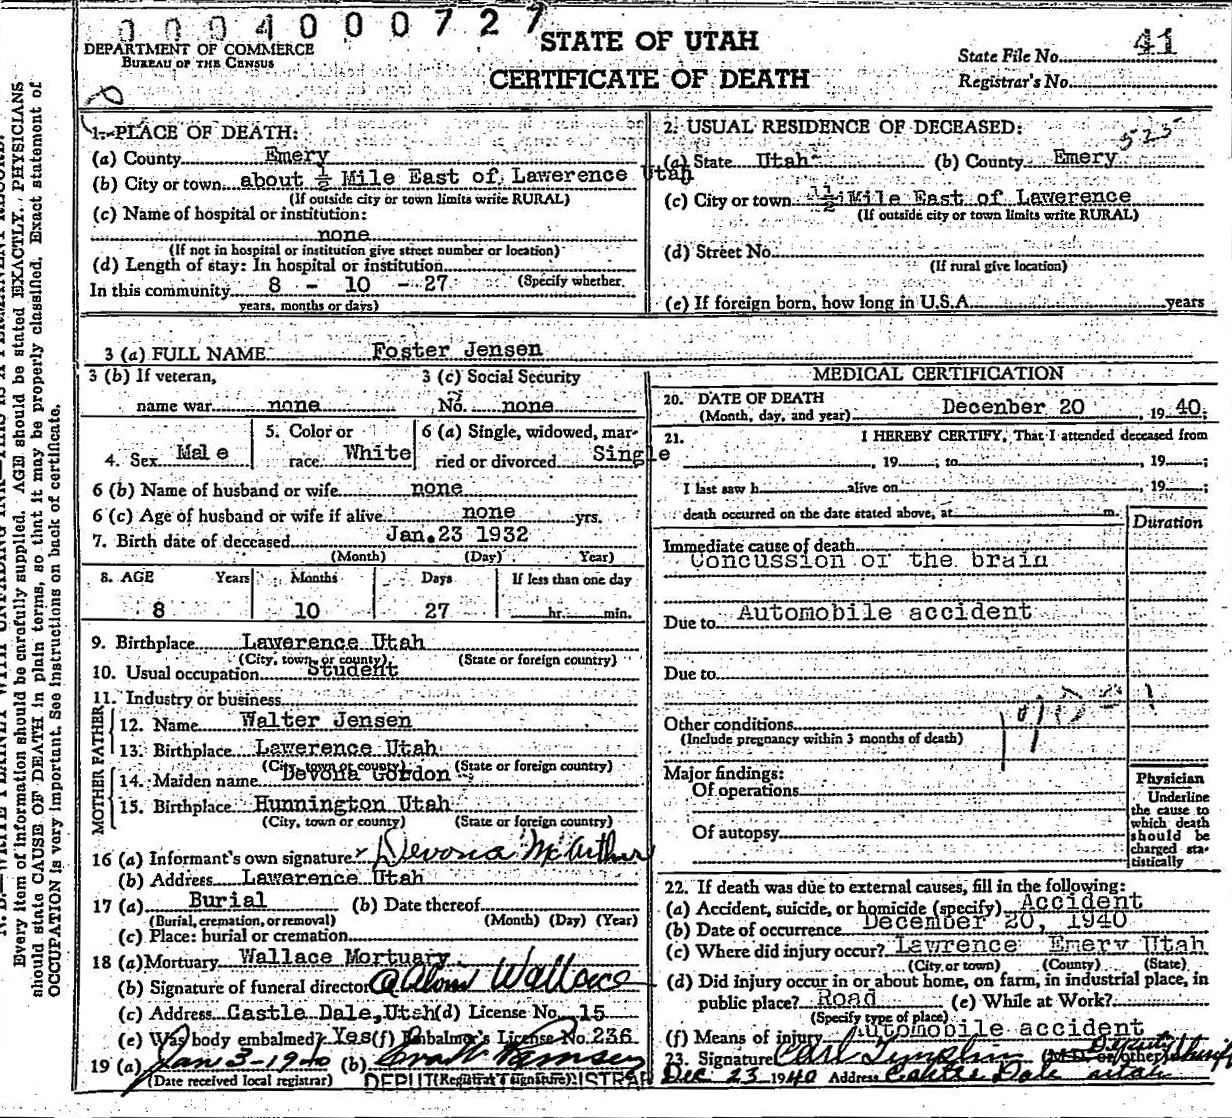 0 0 0 4 0 0 0 7 2 7
DEPARTMENT OF COMMERCE
BUREAU OF THE CENSUS
STATE OF UTAH
CERTIFICATE OF DEATH
State File No. 41
Registrar's No.
Every item of information should be carefully supplied. AGE should be stated EXACTLY. PHYSICIANS
should state CAUSE OF DEATH in plain terms, so that it may be properly classified. Exact statement of
OCCUPATION is very important. See instructions on back of certificate.
1. PLACE OF DEATH:
(a) County Emery
(b) City or town about ½ Mile East of Lawerence Utah
(If outside city or town limits write RURAL)
(c) Name of hospital or institution:
none
(If not in hospital or institution give street number or location)
(d) Length of stay: In hospital or institution
(Specify whether
In this community 8 - 10 - 27
years, months or days)
2. USUAL RESIDENCE OF DECEASED:
525
(a) State Utah (b) County Emery
(c) City or town Mile East of Lawerence
(If outside city or town limits write RURAL)
(d) Street No.
(If rural give location)
(e) If foreign born, how long in U.S.A. years
3 (a) FULL NAME Foster Jensen
3 (b) If veteran,
name war none
3 (c) Social Security
No. none
4. Sex Male
5. Color or
race White
6 (a) Single, widowed, mar-
ried or divorced Single
6 (b) Name of husband or wife none
6 (c) Age of husband or wife if alive none yrs.
7. Birth date of deceased Jan. 23 1932
(Month) (Day) Year)
8. AGE Years Months Days If less than one day
8 10 27 hr. min.
9. Birthplace Lawerence Utah
(City, town or county) (State or foreign country)
10. Usual occupation Student
11. Industry or business
FATHER
12. Name Walter Jensen
13. Birthplace Lawerence Utah
(City, town or county) (State or foreign country)
MOTHER
14. Maiden name Devona Gordon
15. Birthplace Hunnington Utah
(City, town or county) (State or foreign country)
16 (a) Informant's own signature Devona McArthur
(b) Address Lawerence Utah
17 (a) Burial (b) Date thereof
(Burial, cremation, or removal) (Month) (Day) (Year)
(c) Place: burial or cremation
18 (a) Mortuary Wallace Mortuary
(b) Signature of funeral director Wallace
(c) Address Castle Dale, Utah (d) License No. 15
(e) Was body embalmed? Yes (f) Embalmer's License No. 236
19 (a) Jan 3-1940 (b) Ramsey
(Date received local registrar) (Registrar's signature)
DEPUTY REGISTRAR
MEDICAL CERTIFICATION
20. DATE OF DEATH
(Month, day, and year) Decenber 20, 1940;
21. I HEREBY CERTIFY, That I attended deceased from
, 19 ; to , 19 ;
I last saw h alive on , 19 ;
death occurred on the date stated above, at m.
Duration
Immediate cause of death
Concussion of the brain
Due to Automobile accident
Due to
Other conditions
(Include pregnancy within 3 months of death)
Major findings:
Of operations
Of autopsy
Physician
Underline
the cause to
which death
should be
charged sta-
tistically
22. If death was due to external causes, fill in the following:
(a) Accident, suicide, or homicide (specify) Accident
(b) Date of occurrence December 20, 1940
(c) Where did injury occur? Lawrence Emery Utah
(City or town) (County) (State)
(d) Did injury occur in or about home, on farm, in industrial place, in
public place? Road (e) While at Work?
(Specify type of place)
(f) Means of injury Automobile accident
23. Signature Carl (M.D. or other) Deputy Sheriff
Dec 23 1940 Address Castle Dale Utah